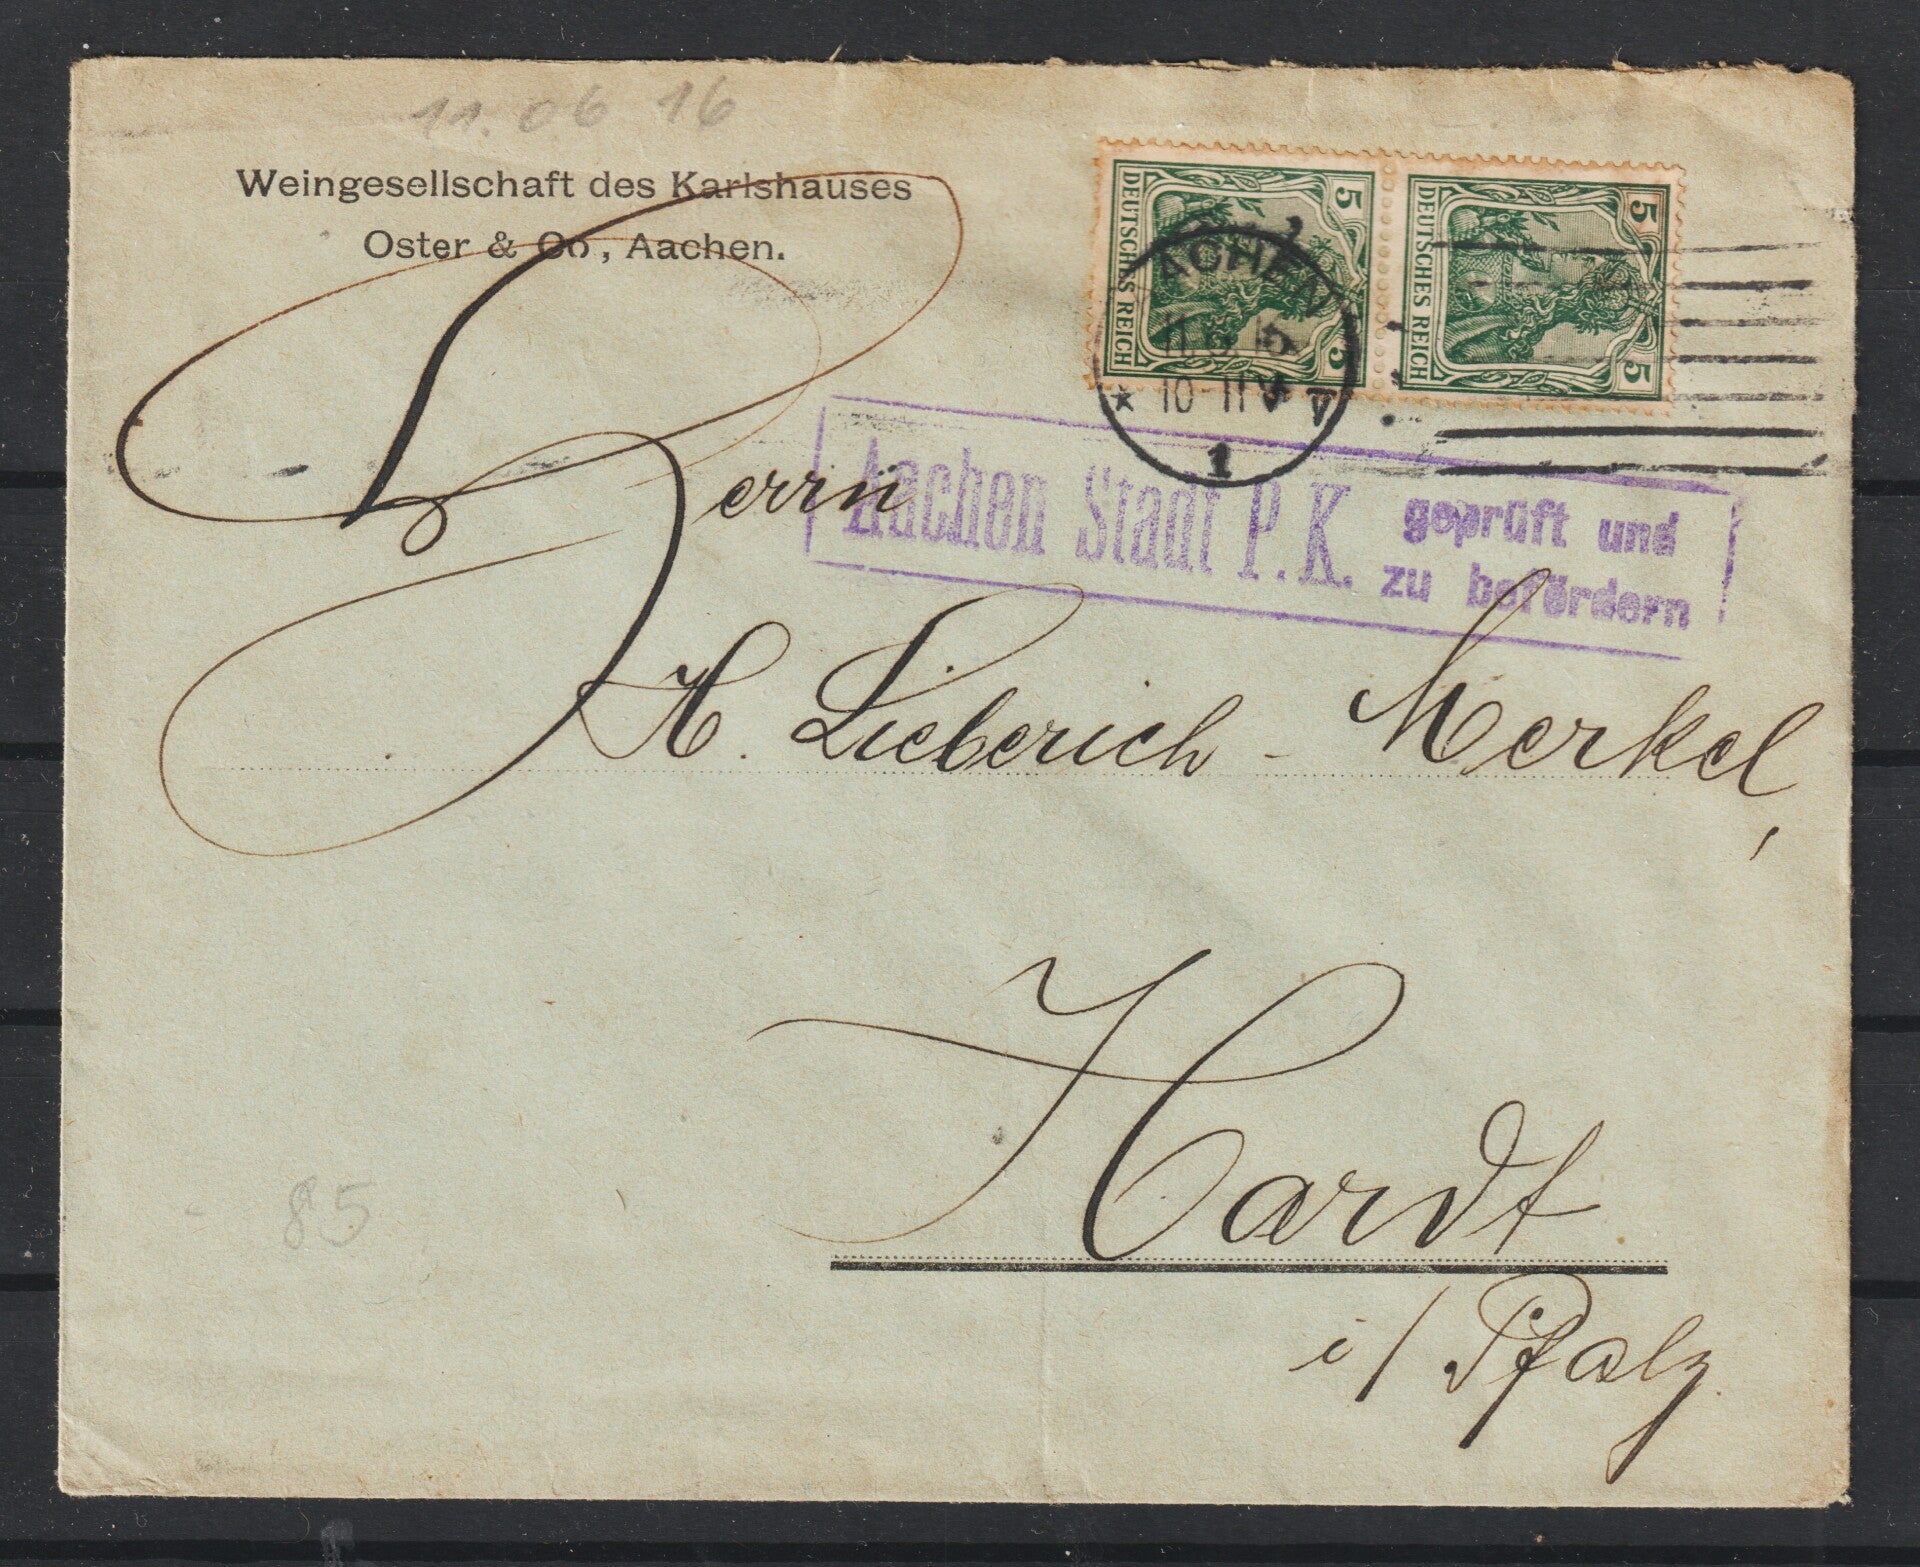 11.06 16
Weingesellschaft des Karlshauses
Oster & Co, Aachen.
5 DEUTSCHES REICH 5
5 DEUTSCHES REICH 5
AACHEN
10-11 V
1
Aachen Stadt P.K. geprüft und
zu befördern
Herrn
H. Lieberich - Merkel,
Hardt
i/Pfalz.
85